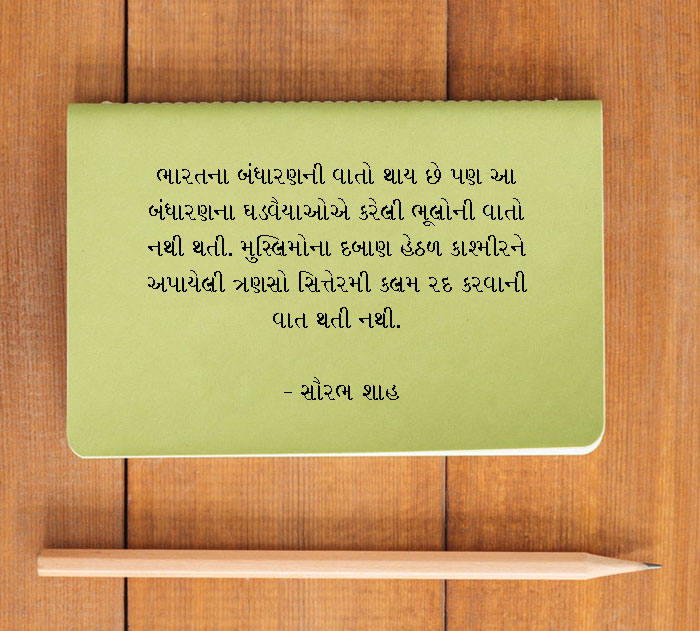 ભારતના બંધારણની વાતો થાય છે પણ આ
બંધારણના ઘડવૈયાઓએ કરેલી ભૂલોની વાતો
નથી થતી. મુસ્લિમોના દબાણ હેઠળ કાશ્મીરને
અપાયેલી ત્રણસો સિત્તેરમી કલમ રદ કરવાની
વાત થતી નથી.
- સૌરભ શાહ